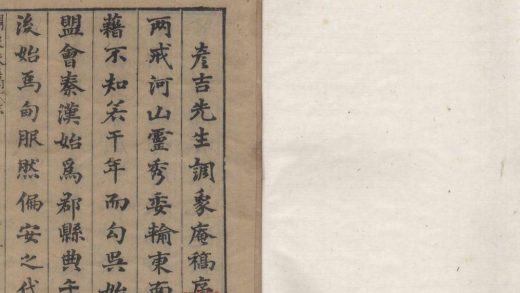 彦吉先生調象庵稿序
两戒河山靈秀委輸東南
藉不知若干年而勾吳始
盟會秦漢始為郡縣典午
後始為甸服然偏安之代